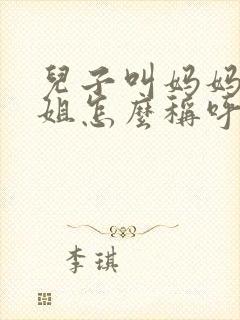 兒子叫妈妈
姐怎麼稱呼
李琪